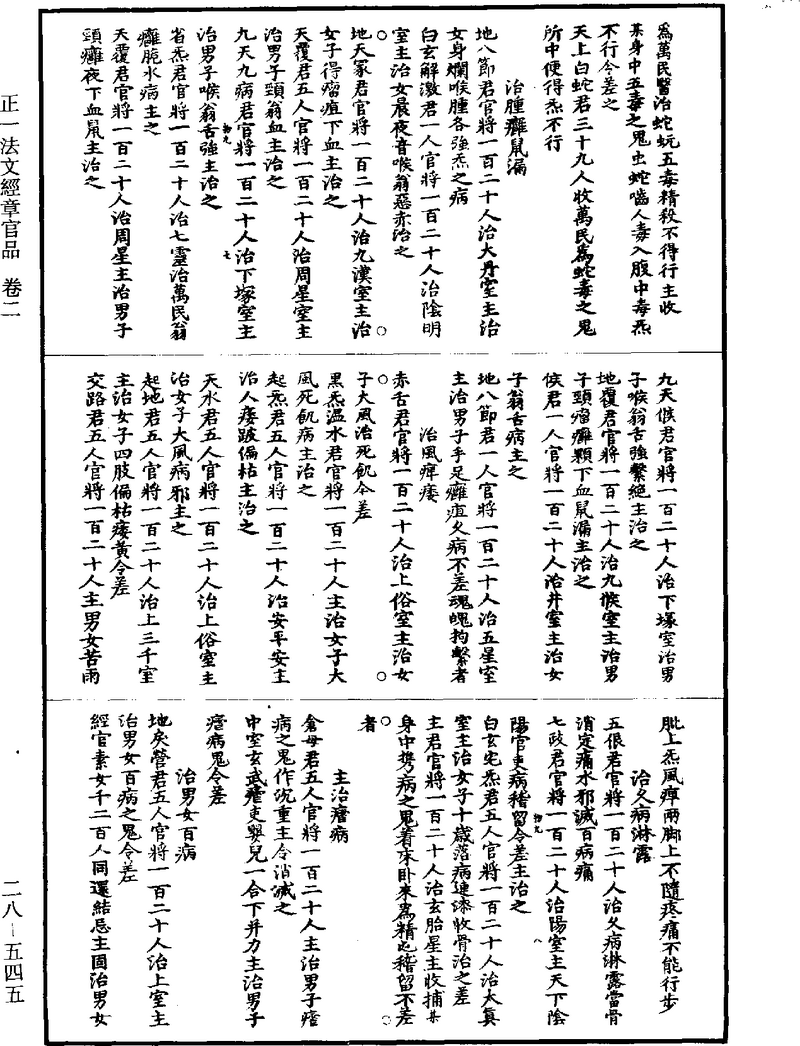 為萬民醫治蛇蚖五毒精殺不得行主收
某身中五毒之鬼虫蛇嚙人毒入腹中毒炁
不行令差之
天上白蛇君三十九人收萬民為蛇毒之鬼
所中便得炁不行
治腫癰鼠漏
地八節君官將一百二十人治大丹室主治
女身爛喉腫各強炁之病
白玄解激君一人官將一百二十人治陰明
室主治女晨夜音喉翁惡赤治之
地天冢君官將一百二十人治九漢室主治
女子得瘤疽下血主治之
天覆君五人官將一百二十人治周星室主
治男子頸翁血主治之
九天九病君官將一百二十人治下塚室主
治男子喉翁舌強主治之
省炁君官將一百二十人治七靈治萬民翁
癰脆水病主之
天覆君官將一百二十人治周星主治男子
頸癰夜下血鼠主治之
九天候君官將一百二十人治下塚室治男
子喉翁舌強繫絕主治之
地覆君官將一百二十人治九候室主治男
子頸瘤癰顆下血鼠漏主治之
候君一人官將一百二十人治井室主治女
子翁舌病主之
地八節君一人官將一百二十人治五星室
主治男子手足癰疽久病不差魂魄拘繫者
治風痺痿
赤舌君官將一百二十人治上俗室主治女
子大風治死飢令差
黑炁溫水君官將一百二十人主治女子大
風死飢病主治之
起炁君五人官將一百二十人治安平安主
治人痿跛偏枯主治之
天水君五人官將一百二十人治上俗室主
治女子大風病邪主之
起地君五人官將一百二十人治上三千室
主治女子四肢偏枯痿黃令差
交路君五人官將一百二十人主男女苦兩
肶上炁風痺兩脚上不隨疼痛不能行步
治久病淋露
五假君官將一百二十人治久病淋露當骨
消定痛水邪滅百病痛
七政君官將一百二十人治陽室主天下陰
陽官吏病稽留令差主治之
白玄宅炁君五人官將一百二十人治太真
室主治女子十歲落病連漆收骨治之差
主君官將一百二十人治玄胎星主收捕某
身中携病之鬼着床卧來為精祂稽留不差
者
主治瘧病
倉母君五人官將一百二十人主治男子瘧
病之鬼作沈重主令消滅之
中室玄武瘧吏嬰兒一合下并力主治男子
瘧病鬼令差
治男女百病
地戾營君五人官將一百二十人治上室主
治男女百病之鬼令差
經官素女千二百人同還結忌主固治男女
正一法文經章官品　卷二
二八－五四五